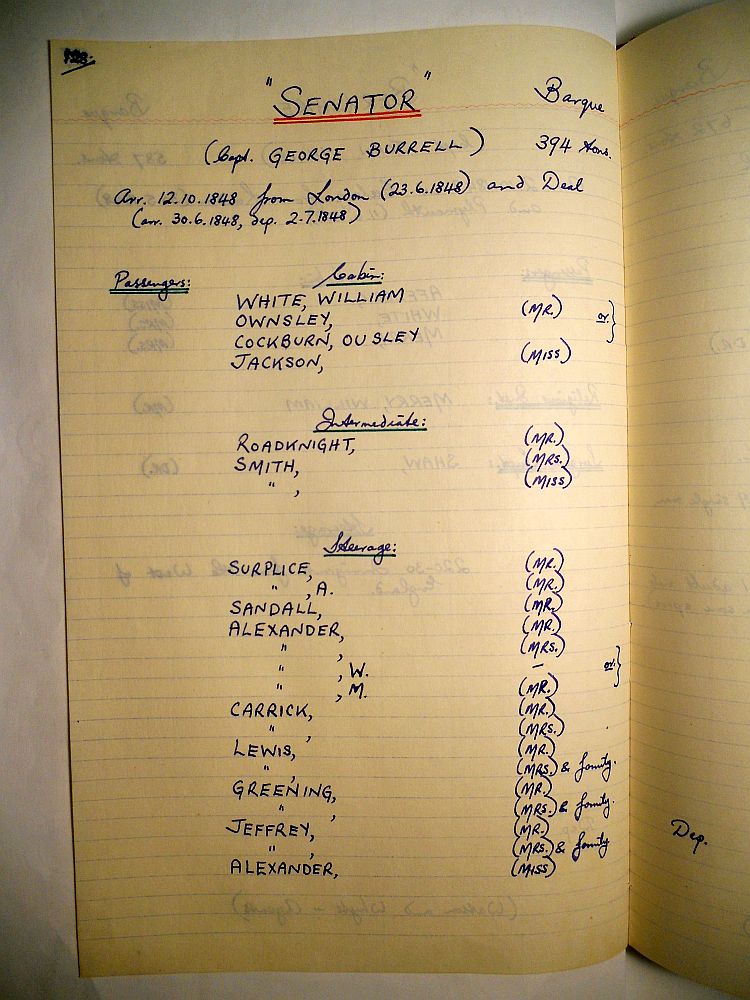 128.
"SENATOR" Barque
(Capt. GEORGE BURRELL) 394 tons.
Arr. 12.10.1848 from London (23.6.1848) and Deal
(arr. 30.6.1848, dep. 2.7.1848)
Passengers: Cabin:
WHITE, WILLIAM
OWNSLEY, (MR.) or }
COCKBURN, OUSLEY
JACKSON, (MISS)
Intermediate:
ROADKNIGHT, (MR.)
SMITH, (MRS.)
" , (MISS)
Steerage:
SURPLICE, (MR.)
" , A. (MR.)
SANDALL, (MR.)
ALEXANDER, (MR.)
" , (MRS.)
" , W. — or }
" , M. (MR.)
CARRICK, (MR.)
" , (MRS.)
LEWIS, (MR.)
" , (MRS.) & family.
GREENING, (MR.)
" , (MRS.) & family.
JEFFREY, (MR.)
" , (MRS.) & family
ALEXANDER, (MISS)
Dep.